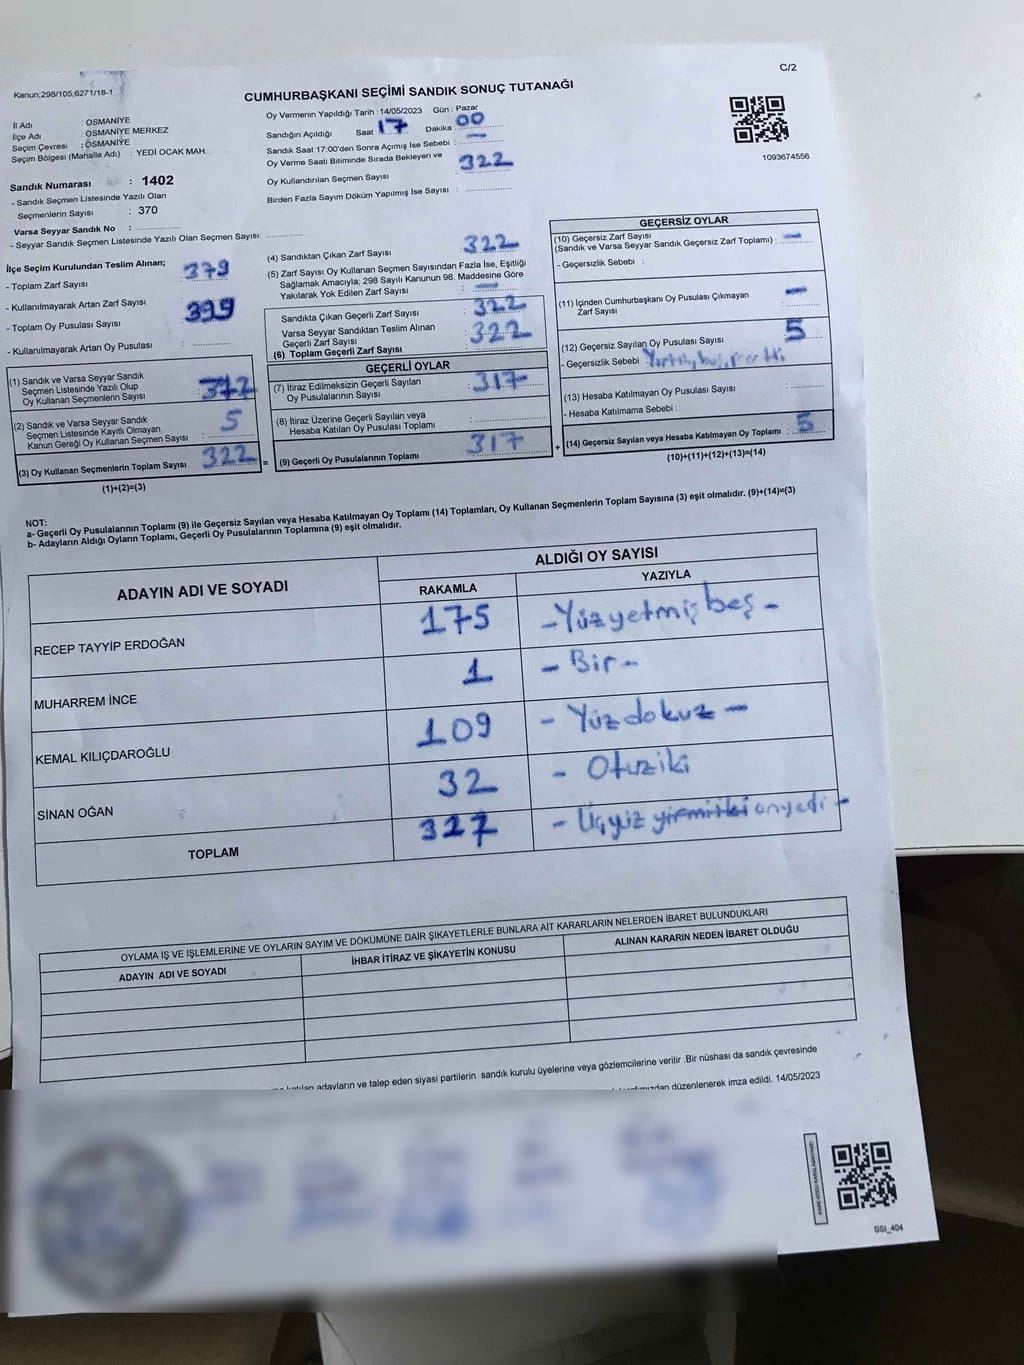 C/2
Kanun;298/105,6271/18-1
CUMHURBAŞKANI SEÇİMİ SANDIK SONUÇ TUTANAĞI
İl Adı : OSMANİYE
İlçe Adı : OSMANİYE MERKEZ
Seçim Çevresi : OSMANİYE
Seçim Bölgesi (Mahalle Adı) : YEDİ OCAK MAH.
Sandık Numarası : 1402
- Sandık Seçmen Listesinde Yazılı Olan
Seçmenlerin Sayısı : 370
Varsa Seyyar Sandık No :
- Seyyar Sandık Seçmen Listesinde Yazılı Olan Seçmen Sayısı:
Oy Vermenin Yapıldığı Tarih : 14/05/2023 Gün : Pazar
Sandığın Açıldığı Saat 17 Dakika : 00
Sandık Saat 17:00'den Sonra Açımış İse Sebebi : -
Oy Verme Saati Bitiminde Sırada Bekleyen ve
Oy Kullandırılan Seçmen Sayısı : 322
Birden Fazla Sayım Döküm Yapılmış İse Sayısı :
1093674556
İlçe Seçim Kurulundan Teslim Alınan;
- Toplam Zarf Sayısı : 379
- Kullanılmayarak Artan Zarf Sayısı :
- Toplam Oy Pusulası Sayısı : 399
- Kullanılmayarak Artan Oy Pusulası :
(1) Sandık ve Varsa Seyyar Sandık
Seçmen Listesinde Yazılı Olup
Oy Kullanan Seçmenlerin Sayısı :
(2) Sandık ve Varsa Seyyar Sandık
Seçmen Listesinde Kayıtlı Olmayan
Kanun Gereği Oy Kullanan Seçmen Sayısı : 5
(3) Oy Kullanan Seçmenlerin Toplam Sayısı : 322
(1)+(2)=(3)
(4) Sandıktan Çıkan Zarf Sayısı : 322
(5) Zarf Sayısı Oy Kullanan Seçmen Sayısından Fazla İse, Eşitliği
Sağlamak Amacıyla; 298 Sayılı Kanunun 98. Maddesine Göre
Yakılarak Yok Edilen Zarf Sayısı : -
Sandıkta Çıkan Geçerli Zarf Sayısı : 322
Varsa Seyyar Sandıktan Teslim Alınan
Geçerli Zarf Sayısı
(6) Toplam Geçerli Zarf Sayısı : 322
GEÇERLİ OYLAR
(7) İtiraz Edilmeksizin Geçerli Sayılan
Oy Pusulalarının Sayısı : 317
(8) İtiraz Üzerine Geçerli Sayılan veya
Hesaba Katılan Oy Pusulası Toplamı :
= (9) Geçerli Oy Pusulalarının Toplamı : 317
GEÇERSİZ OYLAR
(10) Geçersiz Zarf Sayısı
(Sandık ve Varsa Seyyar Sandık Geçersiz Zarf Toplamı) : -
- Geçersizlik Sebebi :
(11) İçinden Cumhurbaşkanı Oy Pusulası Çıkmayan
Zarf Sayısı : -
(12) Geçersiz Sayılan Oy Pusulası Sayısı : 5
- Geçersizlik Sebebi :
(13) Hesaba Katılmayan Oy Pusulası Sayısı :
- Hesaba Katılmama Sebebi :
+ (14) Geçersiz Sayılan veya Hesaba Katılmayan Oy Toplamı : 5
(10)+(11)+(12)+(13)=(14)
NOT:
a- Geçerli Oy Pusulalarının Toplamı (9) ile Geçersiz Sayılan veya Hesaba Katılmayan Oy Toplamı (14) Toplamları, Oy Kullanan Seçmenlerin Toplam Sayısına (3) eşit olmalıdır. (9)+(14)=(3)
b- Adayların Aldığı Oyların Toplamı, Geçerli Oy Pusulalarının Toplamına (9) eşit olmalıdır.
ADAYIN ADI VE SOYADI ALDIĞI OY SAYISI
RAKAMLA YAZIYLA
RECEP TAYYİP ERDOĞAN 175 -Yüzyetmişbeş-
MUHARREM İNCE 1 -Bir-
KEMAL KILIÇDAROĞLU 109 -Yüzdokuz-
SİNAN OĞAN 32 -Otuziki
TOPLAM 327 -Üçyüz yirmiiki onyedi-
OYLAMA İŞ VE İŞLEMLERİNE VE OYLARIN SAYIM VE DÖKÜMÜNE DAİR ŞİKAYETLERLE BUNLARA AİT KARARLARIN NELERDEN İBARET BULUNDUKLARI
ADAYIN ADI VE SOYADI İHBAR İTİRAZ VE ŞİKAYETİN KONUSU ALINAN KARARIN NEDEN İBARET OLDUĞU
katılan adayların ve talep eden siyasi partilerin sandık kurulu üyelerine veya gözlemcilerine verilir .Bir nüshası da sandık çevresinde
düzenlenerek imza edildi. 14/05/2023
SSI_404